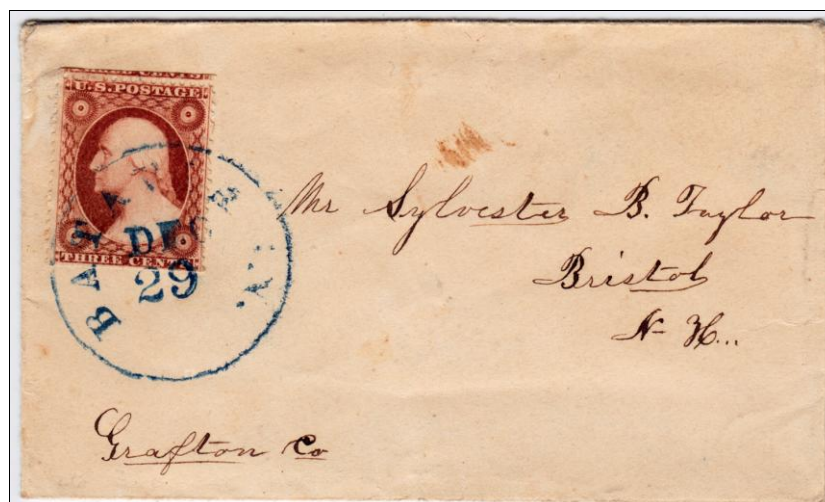 THREE CENTS
U.S. POSTAGE
THREE CENTS
DEC
29
Mr Sylvester B. Taylor
Bristol
N- H...
Grafton Co